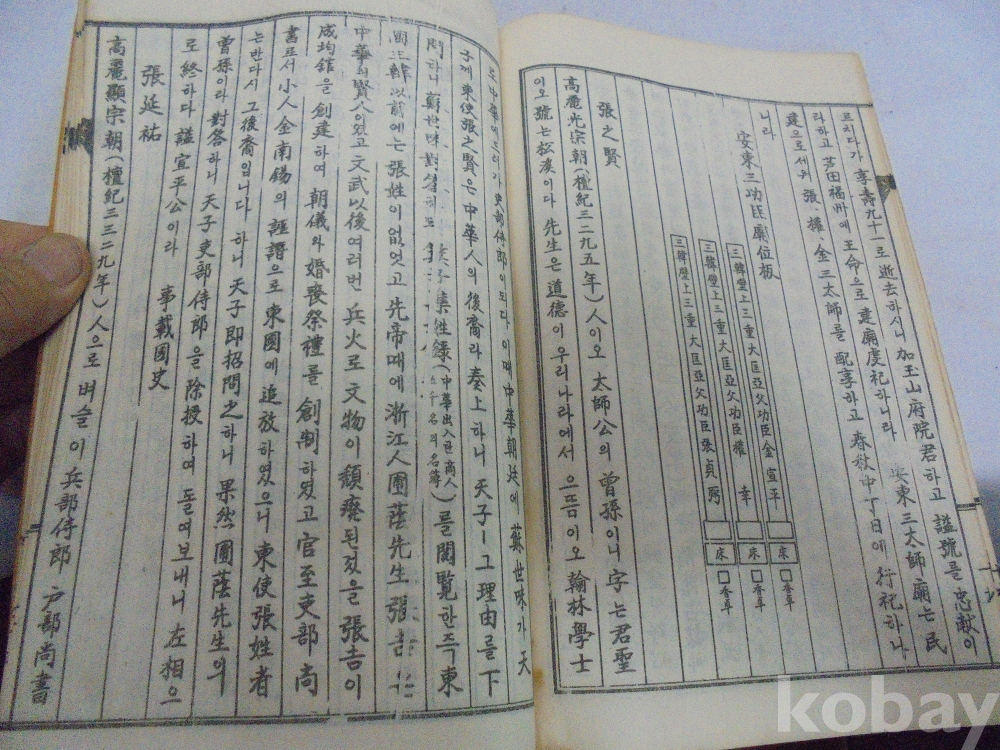 르치다가 享壽九十一로 逝去하시니 加玉山府院君하고 謚號를 忠献이
라하고 苦田福州에 王命으로 建廟度祀하니라 安東三太師廟는 民
建으로세위 張·權·金三太師를 配享하고 春秋中丁日에 行祀하나
니라
安東三功臣廟位板
三韓壁上三重大匡亞父功臣金宣平 床 香卓
三韓壁上三重大匡亞父功臣權幸 床 香卓
三韓壁上三重大匡亞父功臣張貞弼 床 香卓
張之賢
高麗光宗朝(檀紀三二九五年)人이오 太師公의 曾孫이니 字는 君聖
이오 號는 松溪이다 先生은 道德이 우리나라에서 으뜸이오 翰林學士
로 中華에 드러가 史部侍郎이 되다 이때 中華朝廷에 蘇世味가 天
子께 東使張之賢은 中華人의 後裔라 奏上하니 天子ㅣ그 理由를 下
問하니 蘇世味對答하되 集姓錄(中華出入한 商人 名의 名簿)를 閱覽한즉 東
國三韓以前에는 張姓이 없엇고 先帝때에 浙江人圃蔭先生張吉
中華의 賢人이였고 文武以後여러번 兵火로 文物이 頹廢된것을 張吉이
成均館을 創建하여 朝儀와 婚喪祭禮를 創制하였고 官至吏部尚
書로서 小人金南錫의 誣譖으로 東國에 追放하였으니 東使張姓者
는 반다시 그後裔입니다 하니 天子即招問之하니 果然圃蔭先生의
曾孫이라 對答하니 天子吏部侍郎을 除授하여 돌여보내니 左相으
로 終하다 謚宣平公이라 事載國史
張延祐
高麗顯宗朝(檀紀三三二九年)人으로 벼슬이 兵部侍郎 户部尚書
kobay